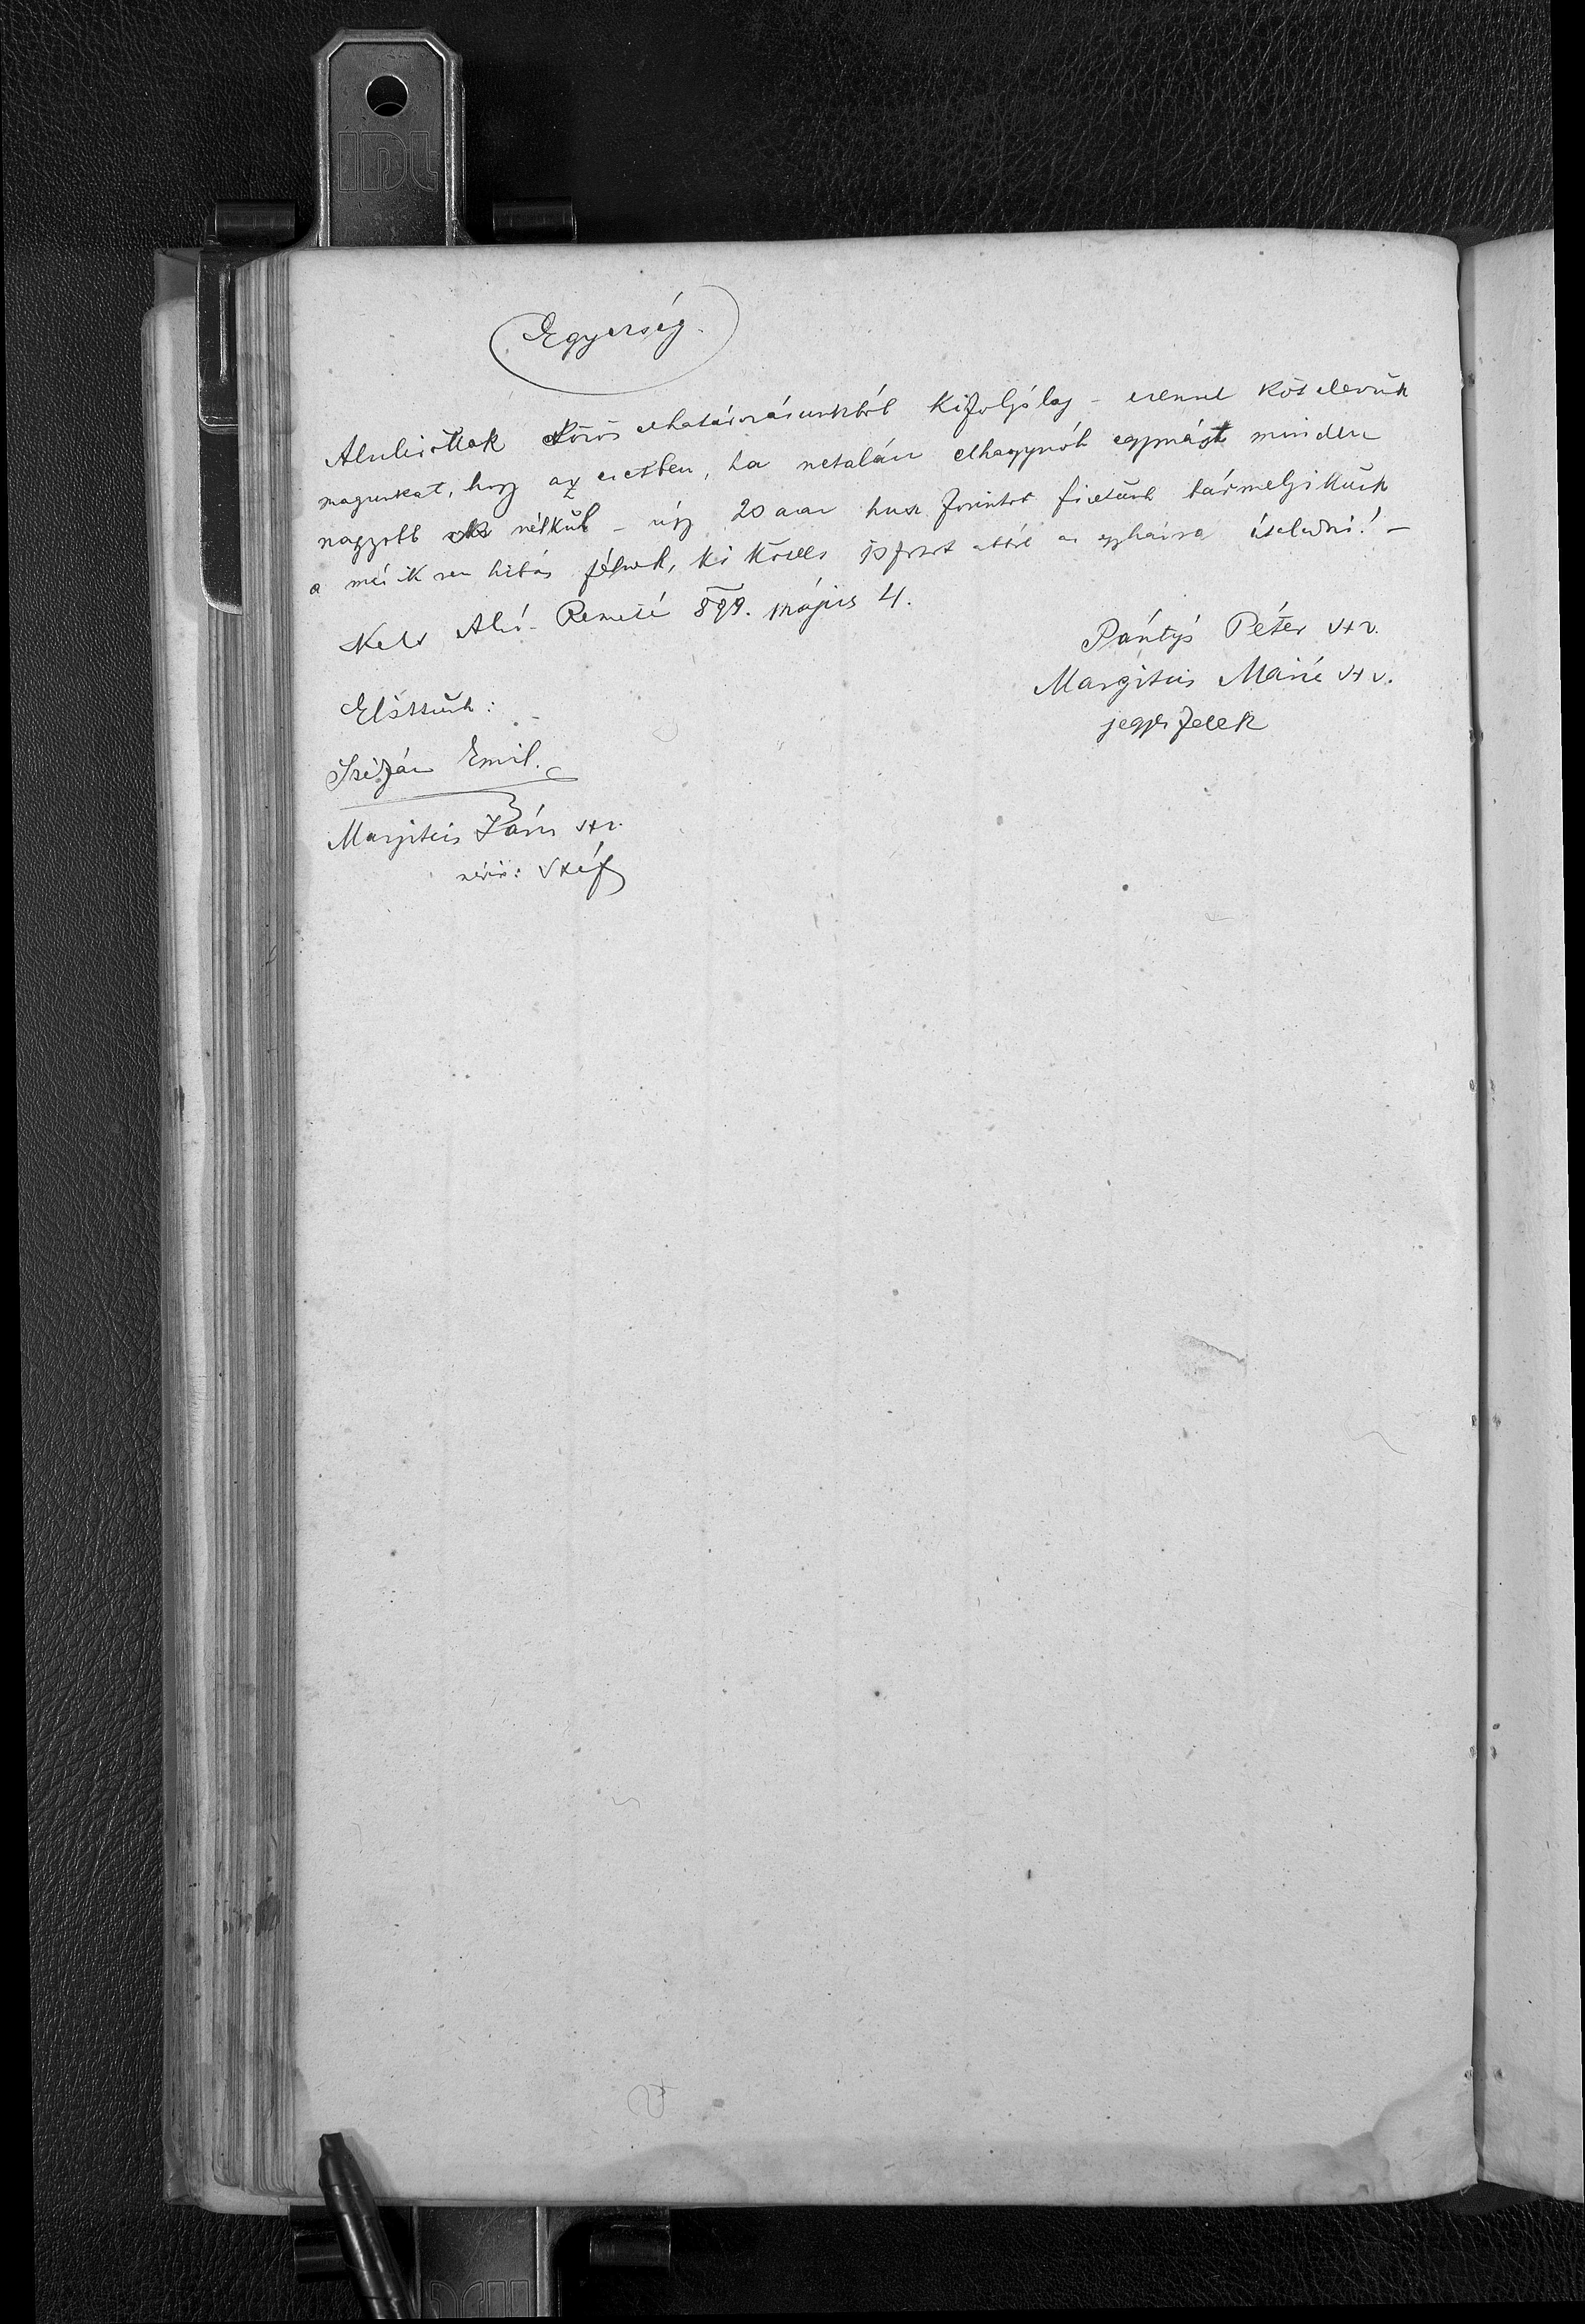 Egyesség.
Alulirottak közös elhatározásunkból kifolyólag – ezennel kötelezzük
magunkat, hogy az esetben, ha netalán elhagynók egymást minden
nagyobb ok nélkül – úgy 20 azaz husz forintot fizetünk bármelyikünk
a másik nem hibás félnek, ki köteles 10 frtot abból az egyházra
Kelt Alsó-Remete 899. május 4.
Pántyó Péter x
Margitics Mária x
jegyesfelek
Előttünk:
Emil.
Margitics János x
névir: